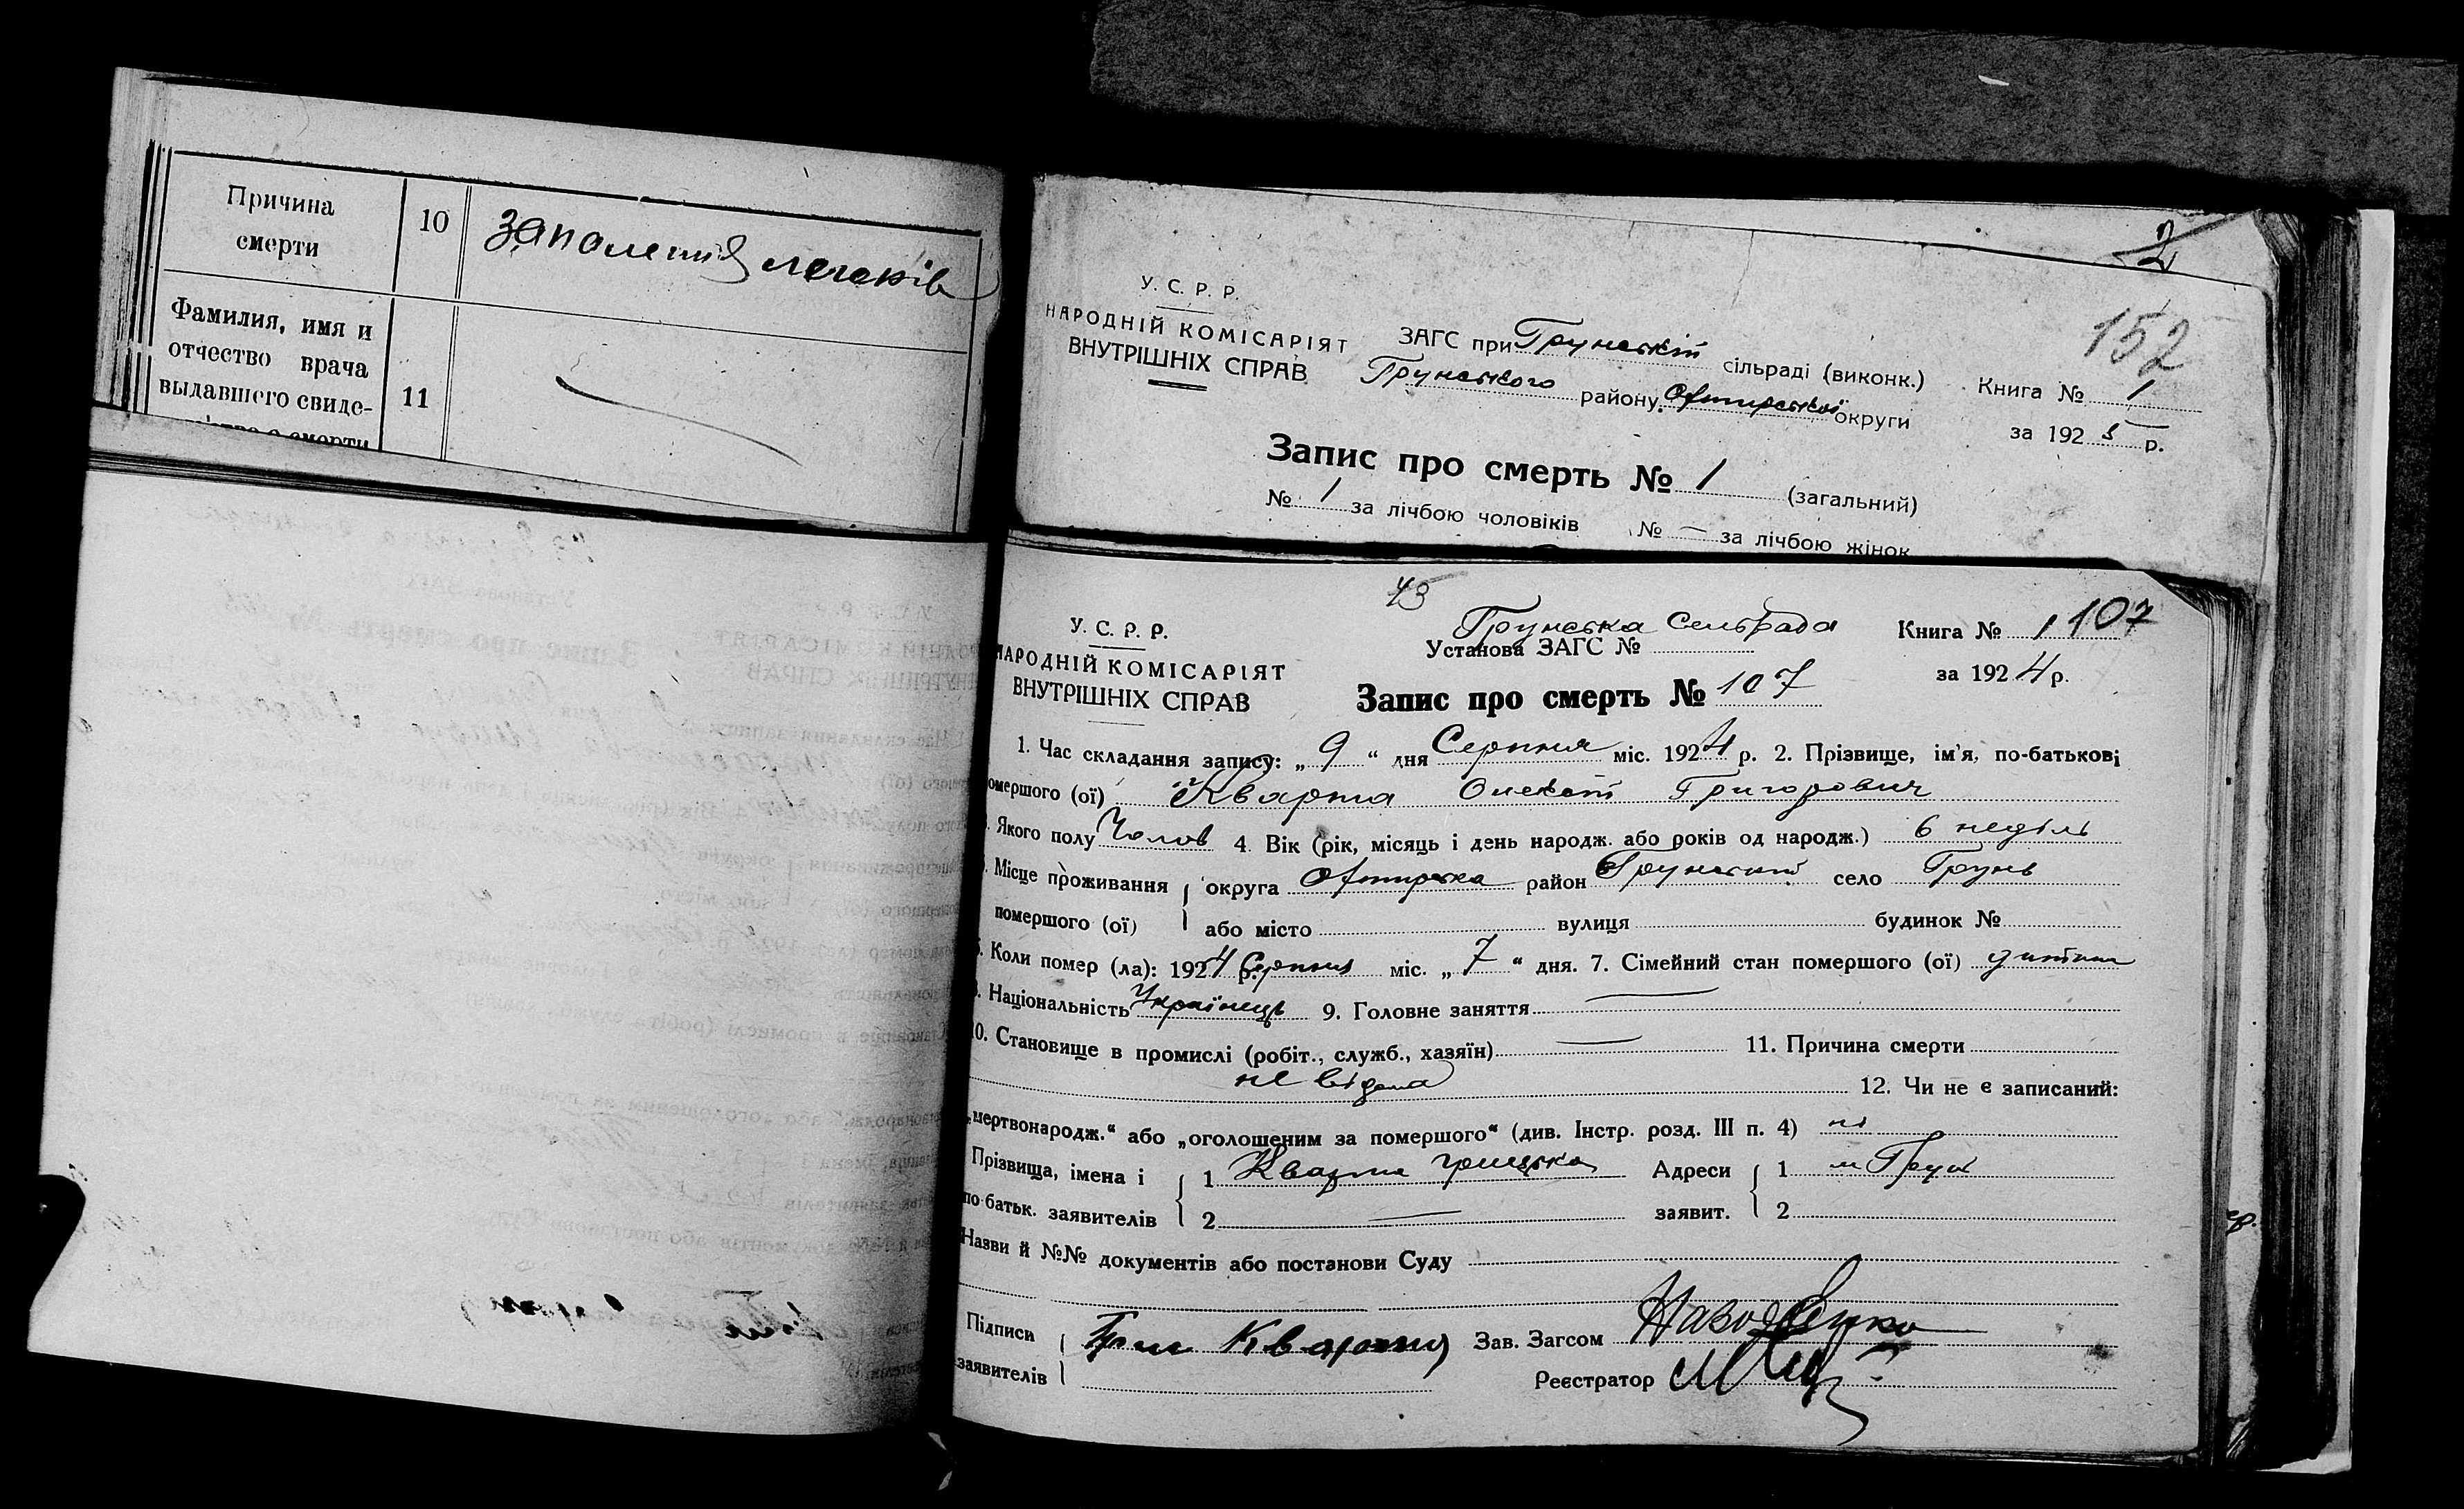 Причина
смерти
10
запаленія легенів
Фамилия, имя и
отчество врача
выдавшего свиде-
11
2
152
У. С. Р. Р.
НАРОДНІЙ КОМІСАРІЯТ
ВНУТРІШНІХ СПРАВ
ЗАГС при Грунській сільраді (виконк.)
Грунського району, Охтирської округи
Книга № 1
за 1925 р.
Запис про смерть № 1 (загальний)
№ 1 за лічбою чоловіків № — за лічбою жінок
43
У. С. Р. Р.
НАРОДНІЙ КОМІСАРІЯТ
ВНУТРІШНІХ СПРАВ
Грунська Сельрада
Установа ЗАГС №
Книга № 1 107
за 1924 р.
Запис про смерть № 107
1. Час складання запису: „ 9 “ дня Серпня міс. 1924 р. 2. Прізвище, ім'я, по-батькові
омершого (ої) Кварта Григорович
Якого полу Чолов 4. Вік (рік, місяць і день народж. або років од народж.) 6 неділь
Місце проживання округа Охтирска район Грунський село Грунь
помершого (ої) або місто вулиця будинок №
Коли помер (ла): 1924 р. Серпня міс. „ 7 “ дня. 7. Сімейний стан помершого (ої) дитина
Національність Українець 9. Головне заняття —
10. Становище в промислі (робіт., служб., хазяїн) — 11. Причина смерти
не відома 12. Чи не є записаний:
„мертвонародж.“ або „оголошеним за помершого“ (див. Інстр. розд. III п. 4) ні
Прізвища, імена і 1 Кварта Грицько Адреси 1 м Грунь
по-батьк. заявителів 2 — заявит. 2
Назви й №№ документів або постанови Суду
Підписи Гри Кварта Зав. Загсом
заявителів Реєстратор